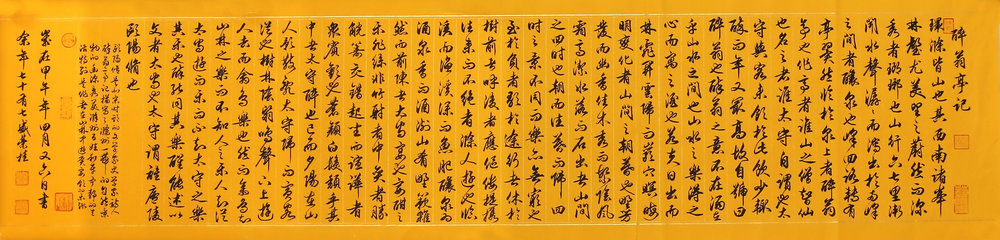 醉翁亭記
環滁皆山也其西南諸峯
林壑尤美望之蔚然而深
秀者瑯琊也山行六七里漸
聞水聲潺潺而瀉出於兩峰
之間者釀泉也峰回路轉有
亭翼然臨於泉上者醉翁
亭也作亭者誰山之僧智仙
也名之者誰太守自謂也太
守與客來飲於此飲少輒
醉而年又最高故自號曰
醉翁也醉翁之意不在酒在
乎山水之間也山水之樂得之
心而寓之酒也若夫日出而
林霏開雲歸而巖穴暝晦
明變化者山間之朝暮也野芳
發而幽香佳木秀而繁陰風
霜高潔水落而石出者山間
之四時也朝而往暮而歸四
時之景不同而樂亦無窮也
至於負者歌於途行者休於
樹前者呼後者應傴僂提攜
往來而不絕者滁人遊也臨
溪而漁溪深而魚肥釀泉為
酒泉香而酒洌山肴野蔌雜
然而前陳者太守宴也宴酣之
樂非絲非竹射者中弈者勝
觥籌交錯起坐而諠譁者
眾賓歡也蒼顏白髮頹乎其
中者太守醉也已而夕陽在山
人影散亂太守歸而賓客
從也樹林陰翳鳴聲上下遊
人去而禽鳥樂也然而禽鳥知
山林之樂而不知人之樂人知從
太守遊而樂而不知太守之樂
其樂也醉能同其樂醒能述以
文者太守也太守謂誰廬陵
歐陽脩也
歲在甲午年四月又六日書
余年七十有七